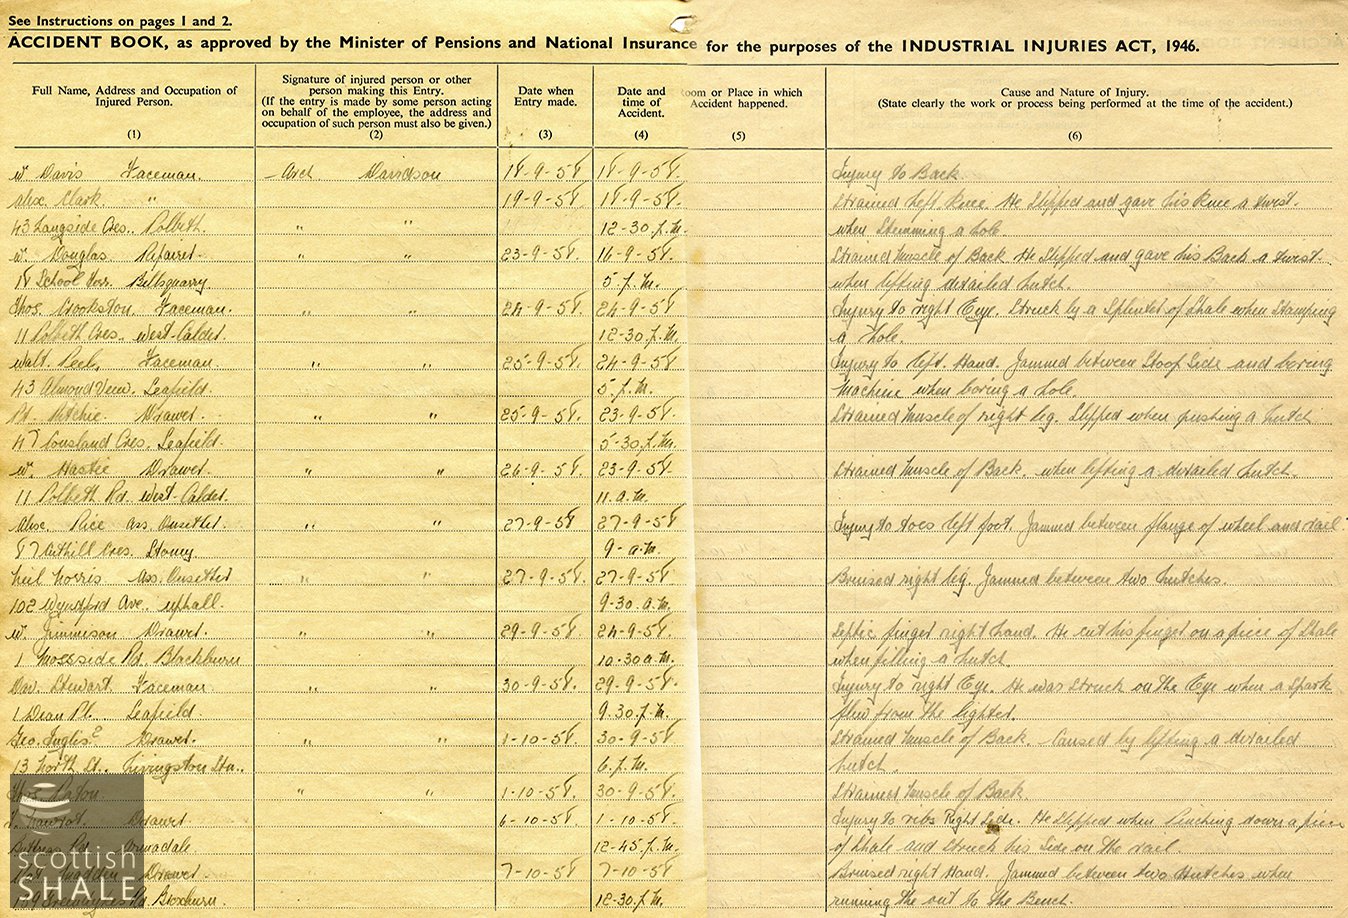 See Instructions on pages 1 and 2.
ACCIDENT BOOK, as approved by the Minister of Pensions and National Insurance for the purposes of the INDUSTRIAL INJURIES ACT, 1946.
Full Name, Address and Occupation of Injured Person. (1)
Signature of injured person or other person making this Entry. (If the entry is made by some person acting on behalf of the employee, the address and occupation of such person must also be given.) (2)
Date when Entry made. (3)
Date and time of Accident. (4)
oom or Place in which Accident happened. (5)
Cause and Nature of Injury. (State clearly the work or process being performed at the time of the accident.) (6)
Wm Davis Faceman. Arch Davidson 18-9-58 18-9-58 Injury to Back.
Alex. Clark " 19-9-58 18-9-58 Strained Left Knee He Slipped and gave his Knee a twist.
43 Langside Cres.. Polbeth. " " 12-30.p.m. when Stemming a hole
Wm Douglas Repairer. " " 23-9-58 16-9-58. Strained Muscle of Back He Slipped and gave his Back a twist.
18 School Terr. Bellsquarry 5.p.m. when lifting derailed hutch.
Thos. Crookston Faceman. " " 24-9-58 24-9-58 Injury to right Eye. Struck by a Splinter of Shale when Stamping
11 Polbeth Cres., West-Calder. 12-30.p.m. a hole.
Walt. Peel, Faceman. " " 25-9-58. 24-9-58 Injury to left. Hand. Jammed between Stoop Side and boring
43 Almond View. Seafield. 5.p.m. Machine when boring a hole.
Ritchie Drawer. " " 25-9-58. 23-9-58. Strained Muscle of right leg. Slipped when pushing a hutch
47 Cousland Cres. Seafield. 5-30.p.m.
Wm Hastie Drawer. " " 26-9-58. 23-9-58. Strained Muscle of Back. when lifting a derailed hutch.
11 Polbeth Rd. West-Calder. 11.a.m.
Alex. Rice Ass. Onsetter. " " 27-9-58 27-9-58 Injury to toes left foot. Jammed between flange of wheel and rail
87 Cuthill Cres. Stoney. 9-a.m.
Neil Norris Ass. Onsetter " " 27-9-58. 27-9-58 Bruised right leg. Jammed between two hutches.
102 Wyndford Ave. Uphall. 9-30.a.m.
Wm Jimmieson Drawer. " " 29-9-58. 24-9-58. Septic finger right hand. He cut his finger on a piece of Shale
1 Mosside Rd. Blackburn 10.30a.m. when filling a hutch.
Dav. Stewart Faceman " " 30-9-58. 29-9-58. Injury to right Eye. He was Struck on the Eye when a Spark
1 Dean Pl. Seafield 9.30.p.m. flew from the lighter.
Geo. Inglis Drawer. " " 1-10-58. 30-9-58. Strained Muscle of Back. Caused by lifting a derailed
13 North St., Livingston Stn.. 6.p.m. hutch.
Thos. Paton " " 1-10-58. 30-9-58. Strained Muscle of Back.
Drawer 6-10-58. 1-10-58. Injury to ribs Right Side. He Slipped when Pinching down a piece
Rd. Armadale. 12-45.p.m. of Shale and Struck his Side on the rail.
Drawer. 7-10-58. 7-10-58 Bruised right Hand. Jammed between two Hutches when
Rd. Broxburn. 12-30.p.m. running the out to the Bench.
scottish
SHALE